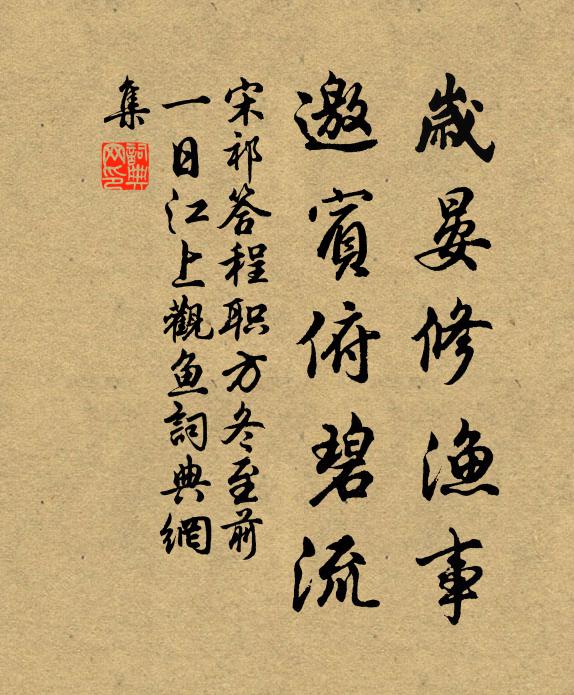 歲晏修漁事
邀賓俯碧流
宋祁答程职方冬至前
一日江上觀鱼詞典網
集
詞典網印